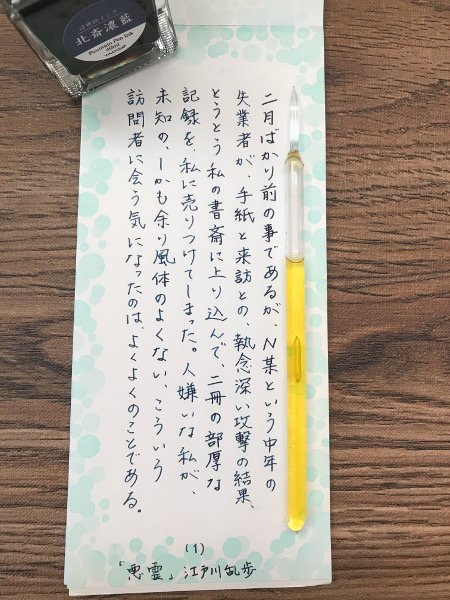 北斎濃藍
Fountain Pen Ink
40ml
二月ばかり前の事であるが、N某という中年の
失業者が、手紙と来訪との、執念深い攻撃の結果、
とうとう私の書斎に上り込んで、二冊の部厚な
記録を、私に売りつけてしまった。人嫌いな私が、
未知の、しかも余り風体のよくない、こういう
訪問者に会う気になったのは、よくよくのことである。
(1)
「悪霊」江戸川乱歩